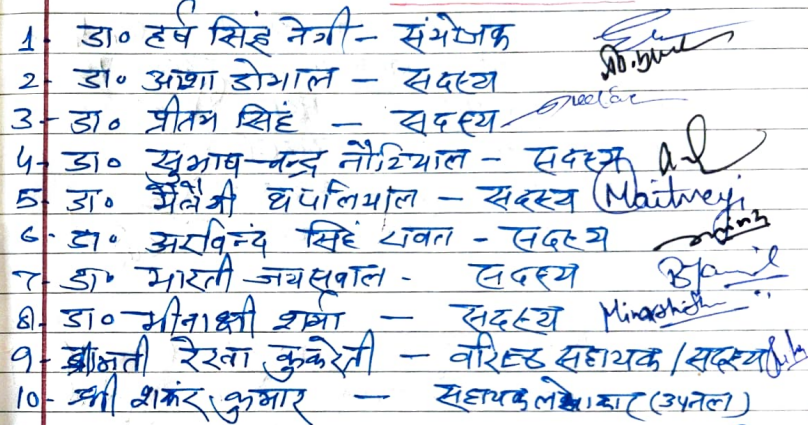 1- डा० हर्ष सिंह नेगी - संयोजक
2- डा० आशा डोभाल - सदस्य
3- डा० प्रीतम सिहं - सदस्य
4- डा० सुभाष चन्द्र नौटियाल - सदस्य
5- डा० मैत्रेयी थपलियाल - सदस्य Maitreyi
6- डा० अरविन्द सिहं रावत - सदस्य
7- डा० भारती जयसवाल - सदस्य
8- डा० मीनाक्षी शर्मा - सदस्य Minakshi
9- श्रीमती रेखा कुकरेती - वरिष्ठ सहायक / सदस्य
10- श्री शकंर कुमार - सहायक लेखाकार (उपनल)